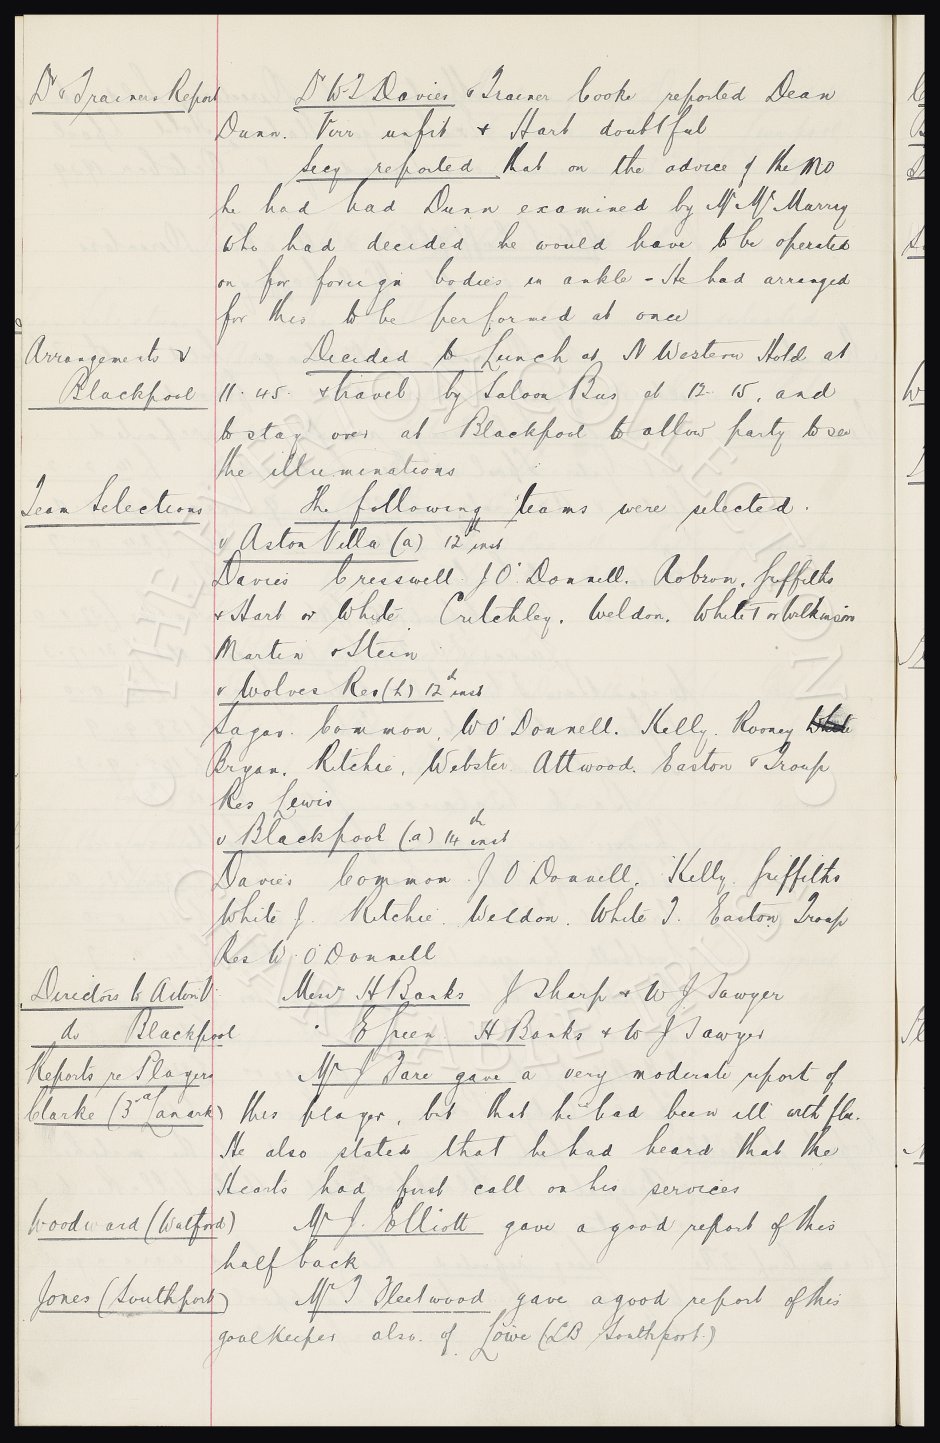 Dr & Trainers Report
Dr W.T Davies & Trainer Cooke reported Dean
Dunn. Virr unfit & Hart doubtful
Secy reported that on the advice of the MO
he had had Dunn examined by Mr McMurray
who had decided he would have to be operated
on for foreign bodies in ankle - He had arranged
for this to be performed at once
Arrangements v
Blackpool
Decided to Lunch at N Western Hotel at
11.45. & travel by Saloon Bus at 12.15, and
to stay over at Blackpool to allow party to see
the illuminations
Team Selections
The following teams were selected.
v Aston Villa (a) 12th inst
Davies Cresswell. J O'Donnell. Robson. Griffiths
& Hart or White. Critchley. Weldon. White T or Wilkinson
Martin & Stein
v Wolves Res (h) 12th inst
Sagar. Common. W O'Donnell. Kelly. Rooney White
Bryan. Ritchie. Webster. Attwood. Easton & Troup
Res Lewis
v Blackpool (a) 14th inst
Davies Common J O'Donnell. Kelly. Griffiths
White J. Ritchie. Weldon. White T. Easton, Troup
Res W. O'Donnell
Directors to Aston V.
Messrs H Banks J Sharp & W J Sawyer
do Blackpool
" E Green H Banks & W J Sawyer
Reports re Players
Clarke (3rd Lanark)
Mr J Fare gave a very moderate report of
this player, but that he had been ill with flu.
He also stated that he had heard that the
Hearts had first call on his services
Woodward (Watford)
Mr J. Elliott gave a good report of this
half back
Jones (Southport)
Mr T Fleetwood gave a good report of this
goalkeeper also. of Lowe (LB Southport)
THE EVERTON COLLECTION
CHARITABLE TRUST